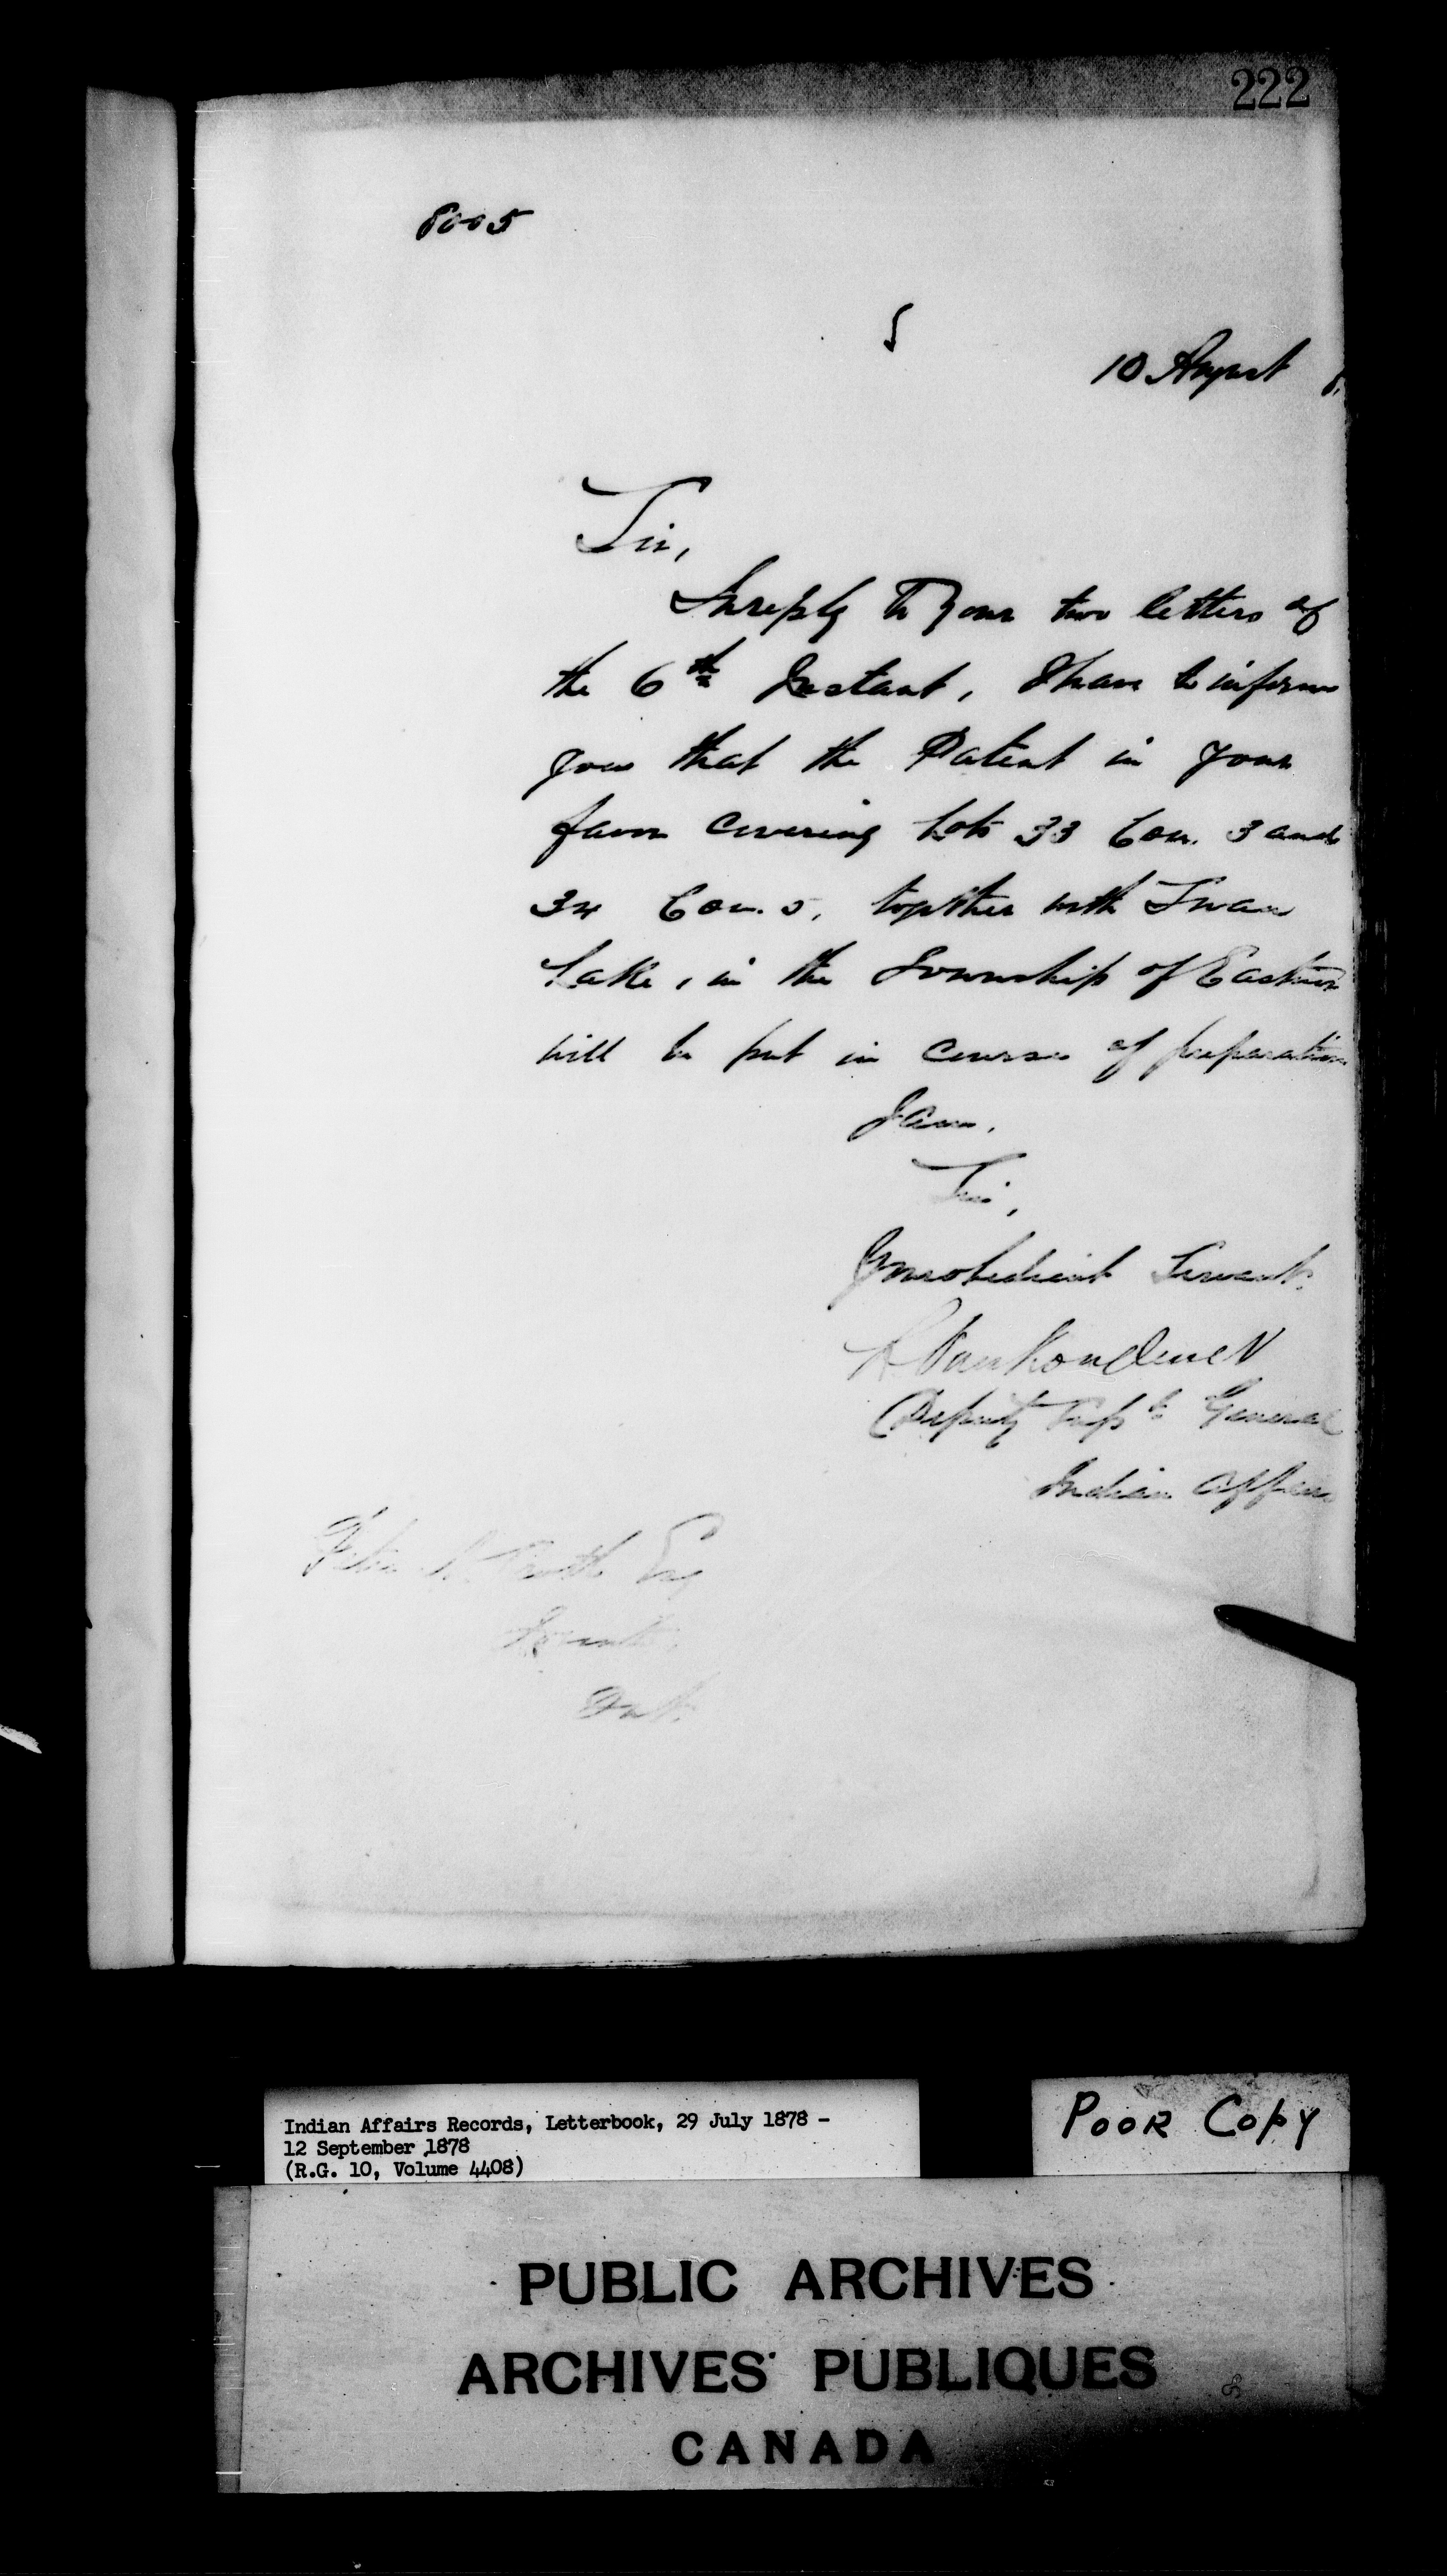 222
8005
10 August
Sir,
In reply to your two letters of
the 6th Instant, I have to inform
you that the Patent in your
favor covering Lots 33 Con. 3 and
34 Con. 5, together with Swan
Lake, in the Township of Eastnor
will be put in course of preparation
I am,
Sir,
Your obedient Servant,
L Vankoughnet
Deputy Supt General
Indian Affairs
Esq
Toronto,
Ont.
Indian Affairs Records, Letterbook, 29 July 1878 -
12 September 1878
(R.G. 10, Volume 4408)
POOR COPY
PUBLIC ARCHIVES
ARCHIVES PUBLIQUES
CANADA